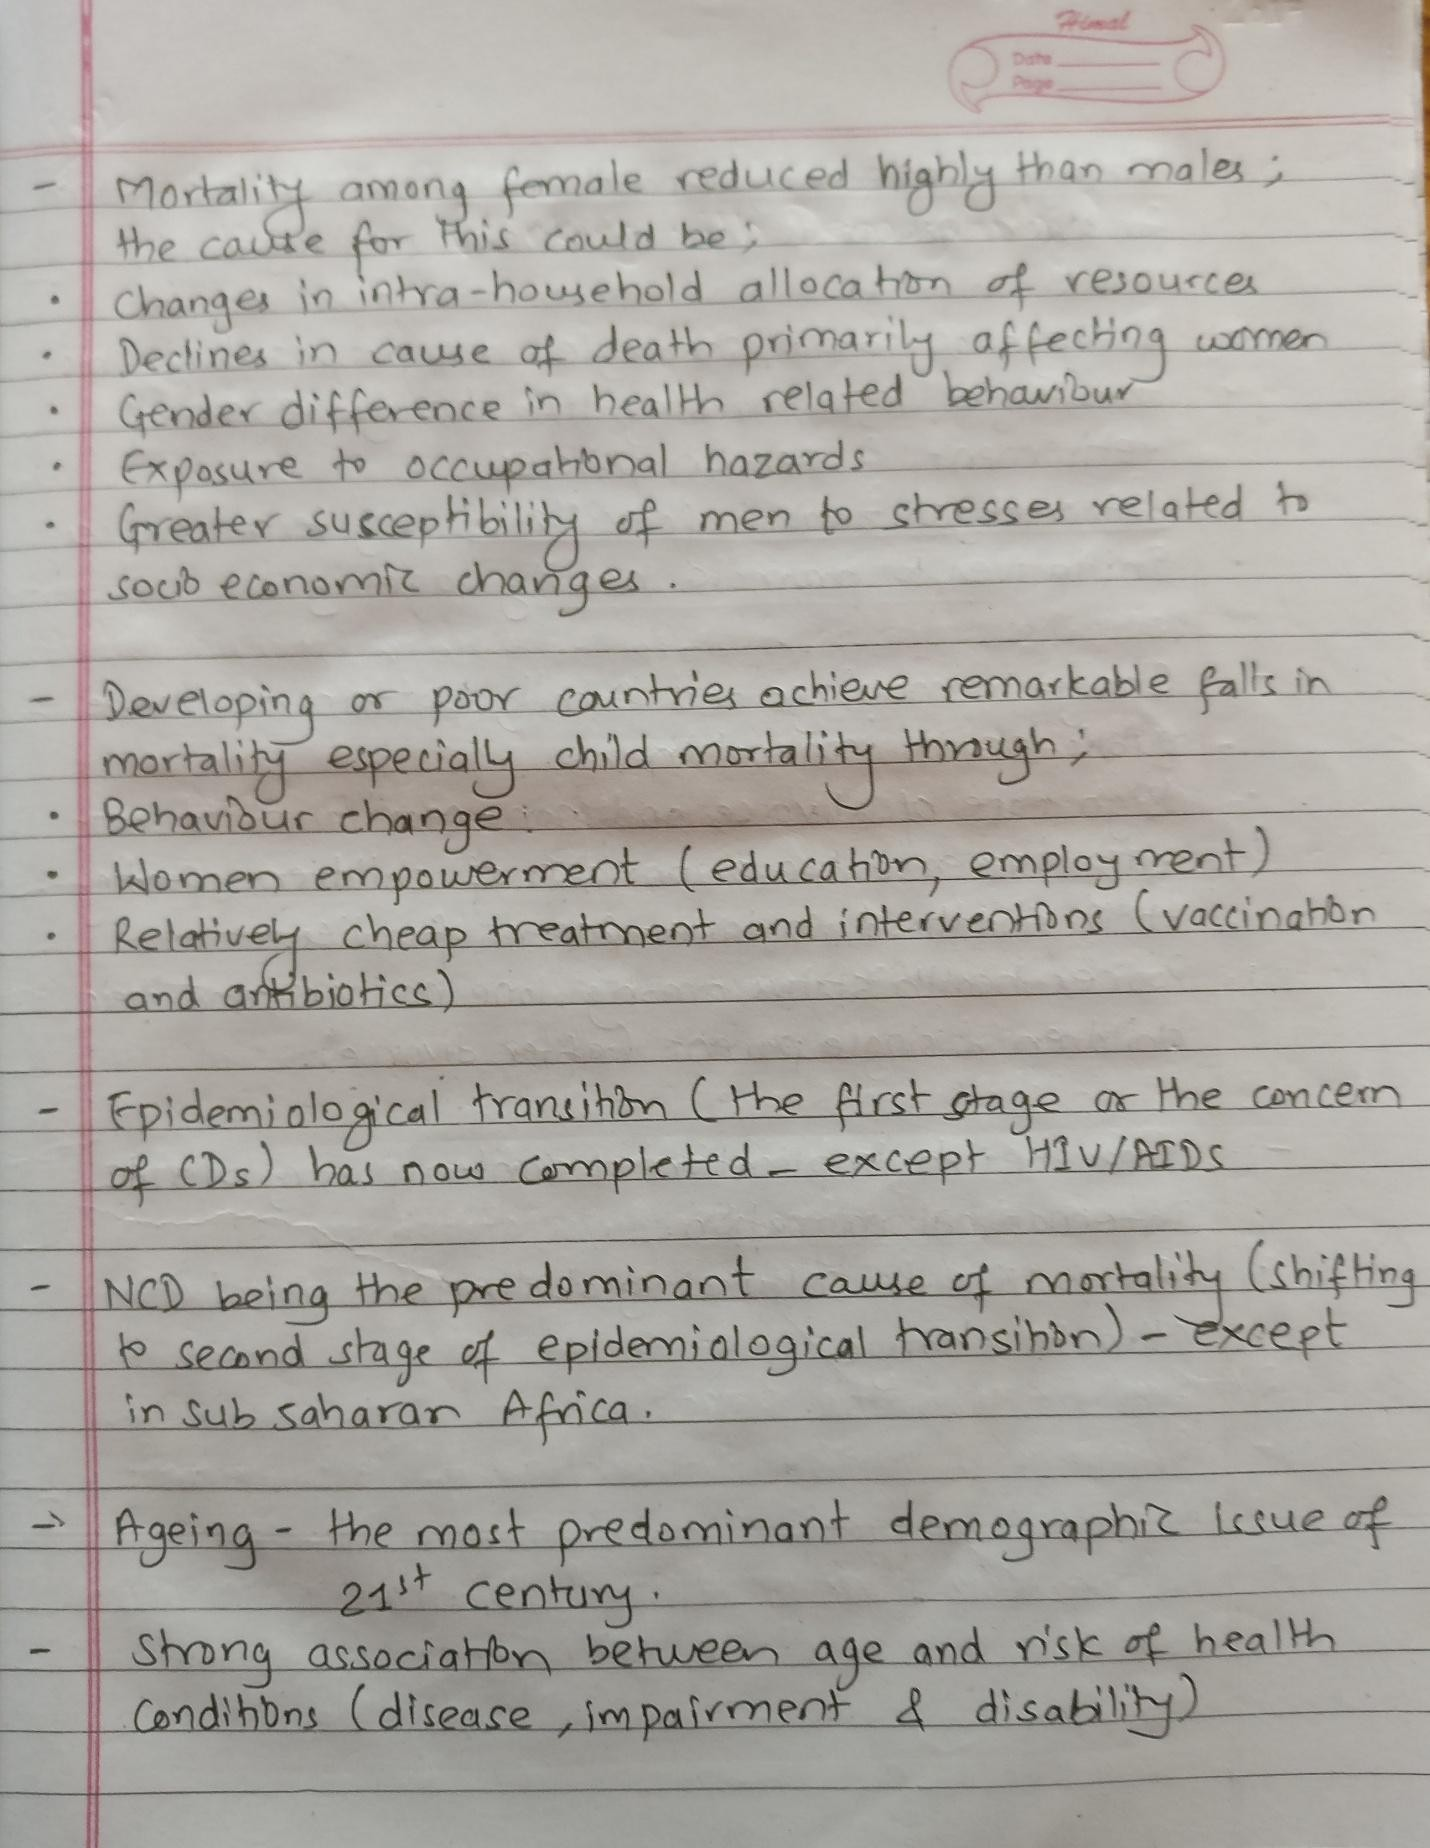 Himal
Date
Page
- Mortality among female reduced highly than males ;
the cause for this could be ;
• Changes in intra-household allocation of resources
• Declines in cause of death primarily affecting women
• Gender difference in health related behaviour
• Exposure to occupational hazards
• Greater susceptibility of men to stresses related to
socio economic changes .
- Developing or poor countries achieve remarkable falls in
mortality especially child mortality through ;
• Behaviour change .
• Women empowerment ( education, employment )
• Relatively cheap treatment and interventions ( vaccination
and antibiotics )
- Epidemiological transition ( the first stage or the concern
of CDs ) has now completed - except HIV/AIDS
- NCD being the predominant cause of mortality ( shifting
to second stage of epidemiological transition ) - except
in sub saharan Africa .
→ Ageing - the most predominant demographic issue of
21st century .
- Strong association between age and risk of health
conditions ( disease , impairment & disability )